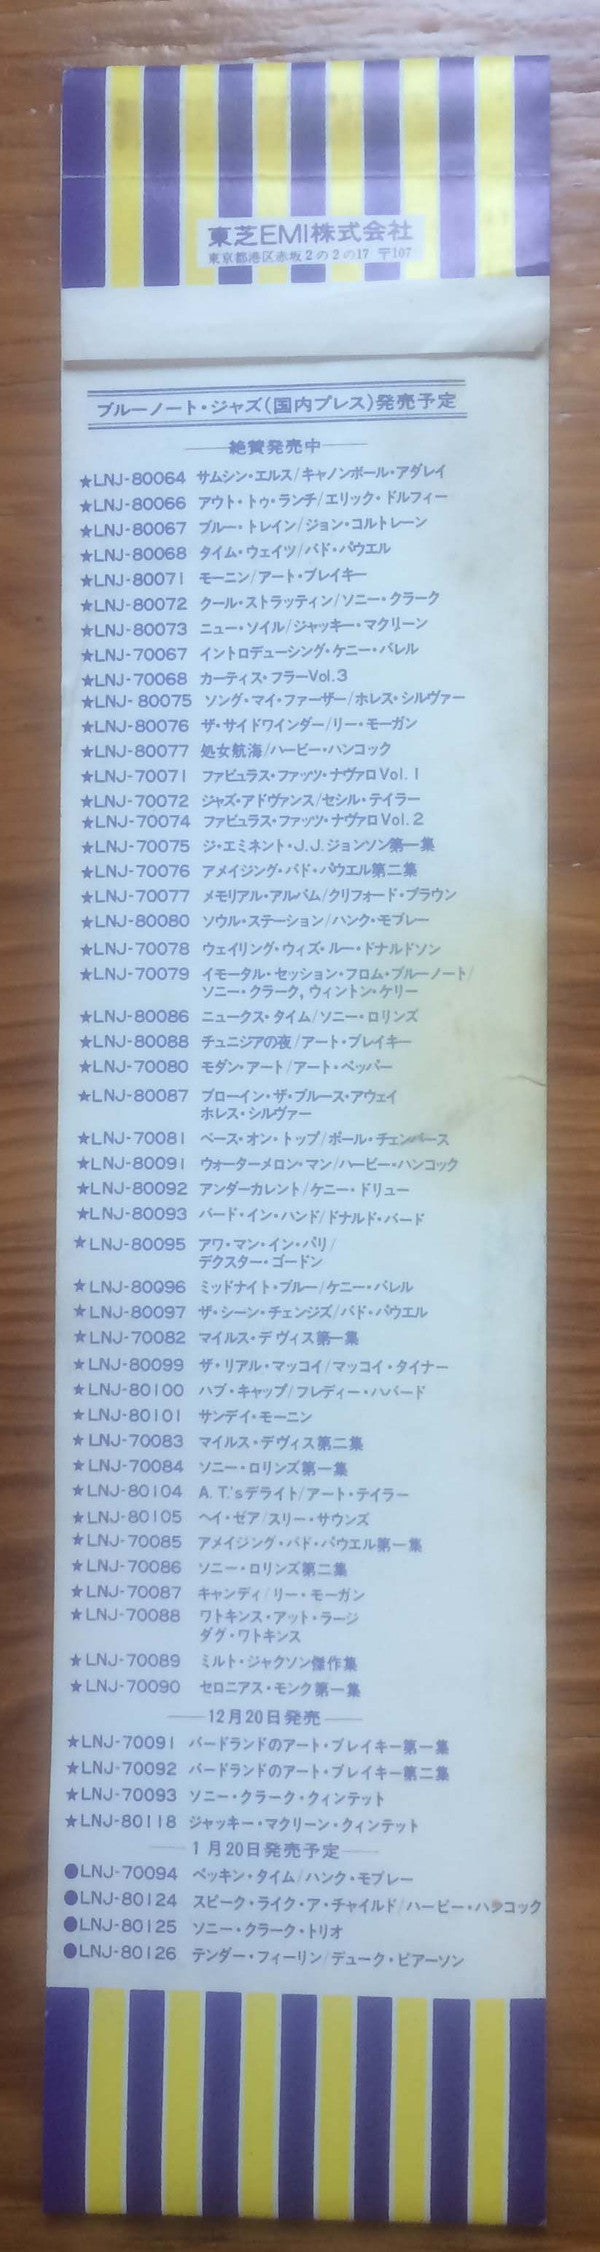 東芝EMI株式会社
東京都港区赤坂2の2の17 〒107
ブルーノート・ジャズ(国内プレス)発売予定
絶賛発売中
★LNJ-80064 サムシン・エルス/キャノンボール・アダレイ
★LNJ-80066 アウト・トゥ・ランチ/エリック・ドルフィー
★LNJ-80067 ブルー・トレイン/ジョン・コルトレーン
★LNJ-80068 タイム・ウェイツ/バド・パウエル
★LNJ-80071 モーニン/アート・ブレイキー
★LNJ-80072 クール・ストラッティン/ソニー・クラーク
★LNJ-80073 ニュー・ソイル/ジャッキー・マクリーン
★LNJ-70067 イントロデューシング・ケニー・バレル
★LNJ-70068 カーティス・フラーVol.3
★LNJ-80075 ソング・マイ・ファーザー/ホレス・シルヴァー
★LNJ-80076 ザ・サイドワインダー/リー・モーガン
★LNJ-80077 処女航海/ハービー・ハンコック
★LNJ-70071 ファビュラス・ファッツ・ナヴァロVol.1
★LNJ-70072 ジャズ・アドヴァンス/セシル・テイラー
★LNJ-70074 ファビュラス・ファッツ・ナヴァロVol.2
★LNJ-70075 ジ・エミネント・J.J.ジョンソン第一集
★LNJ-70076 アメイジング・バド・パウエル第二集
★LNJ-70077 メモリアル・アルバム/クリフォード・ブラウン
★LNJ-80080 ソウル・ステーション/ハンク・モブレー
★LNJ-70078 ウェイリング・ウィズ・ルー・ドナルドソン
★LNJ-70079 イモータル・セッション・フロム・ブルーノート/
ソニー・クラーク,ウィントン・ケリー
★LNJ-80086 ニュークス・タイム/ソニー・ロリンズ
★LNJ-80088 チュニジアの夜/アート・ブレイキー
★LNJ-70080 モダン・アート/アート・ペッパー
★LNJ-80087 ブローイン・ザ・ブルース・アウェイ
ホレス・シルヴァー
★LNJ-70081 ベース・オン・トップ/ポール・チェンバース
★LNJ-80091 ウォーターメロン・マン/ハービー・ハンコック
★LNJ-80092 アンダーカレント/ケニー・ドリュー
★LNJ-80093 バード・イン・ハンド/ドナルド・バード
★LNJ-80095 アワ・マン・イン・パリ/
デクスター・ゴードン
★LNJ-80096 ミッドナイト・ブルー/ケニー・バレル
★LNJ-80097 ザ・シーン・チェンジズ/バド・パウエル
★LNJ-70082 マイルス・デヴィス第一集
★LNJ-80099 ザ・リアル・マッコイ/マッコイ・タイナー
★LNJ-80100 ハブ・キャップ/フレディー・ハバード
★LNJ-80101 サンデイ・モーニン
★LNJ-70083 マイルス・デヴィス第二集
★LNJ-70084 ソニー・ロリンズ第一集
★LNJ-80104 A.T.'sデライト/アート・テイラー
★LNJ-80105 ヘイ・ゼア/スリー・サウンズ
★LNJ-70085 アメイジング・バド・パウエル第一集
★LNJ-70086 ソニー・ロリンズ第二集
★LNJ-70087 キャンディ/リー・モーガン
★LNJ-70088 ワトキンス・アット・ラージ
ダグ・ワトキンス
★LNJ-70089 ミルト・ジャクソン傑作集
★LNJ-70090 セロニアス・モンク第一集
12月20日発売
★LNJ-70091 バードランドのアート・ブレイキー第一集
★LNJ-70092 バードランドのアート・ブレイキー第二集
★LNJ-70093 ソニー・クラーク・クィンテット
★LNJ-80118 ジャッキー・マクリーン・クィンテット
1月20日発売予定
●LNJ-70094 ペッキン・タイム/ハンク・モブレー
●LNJ-80124 スピーク・ライク・ア・チャイルド/ハービー・ハンコック
●LNJ-80125 ソニー・クラーク・トリオ
●LNJ-80126 テンダー・フィーリン/デューク・ピアーソン